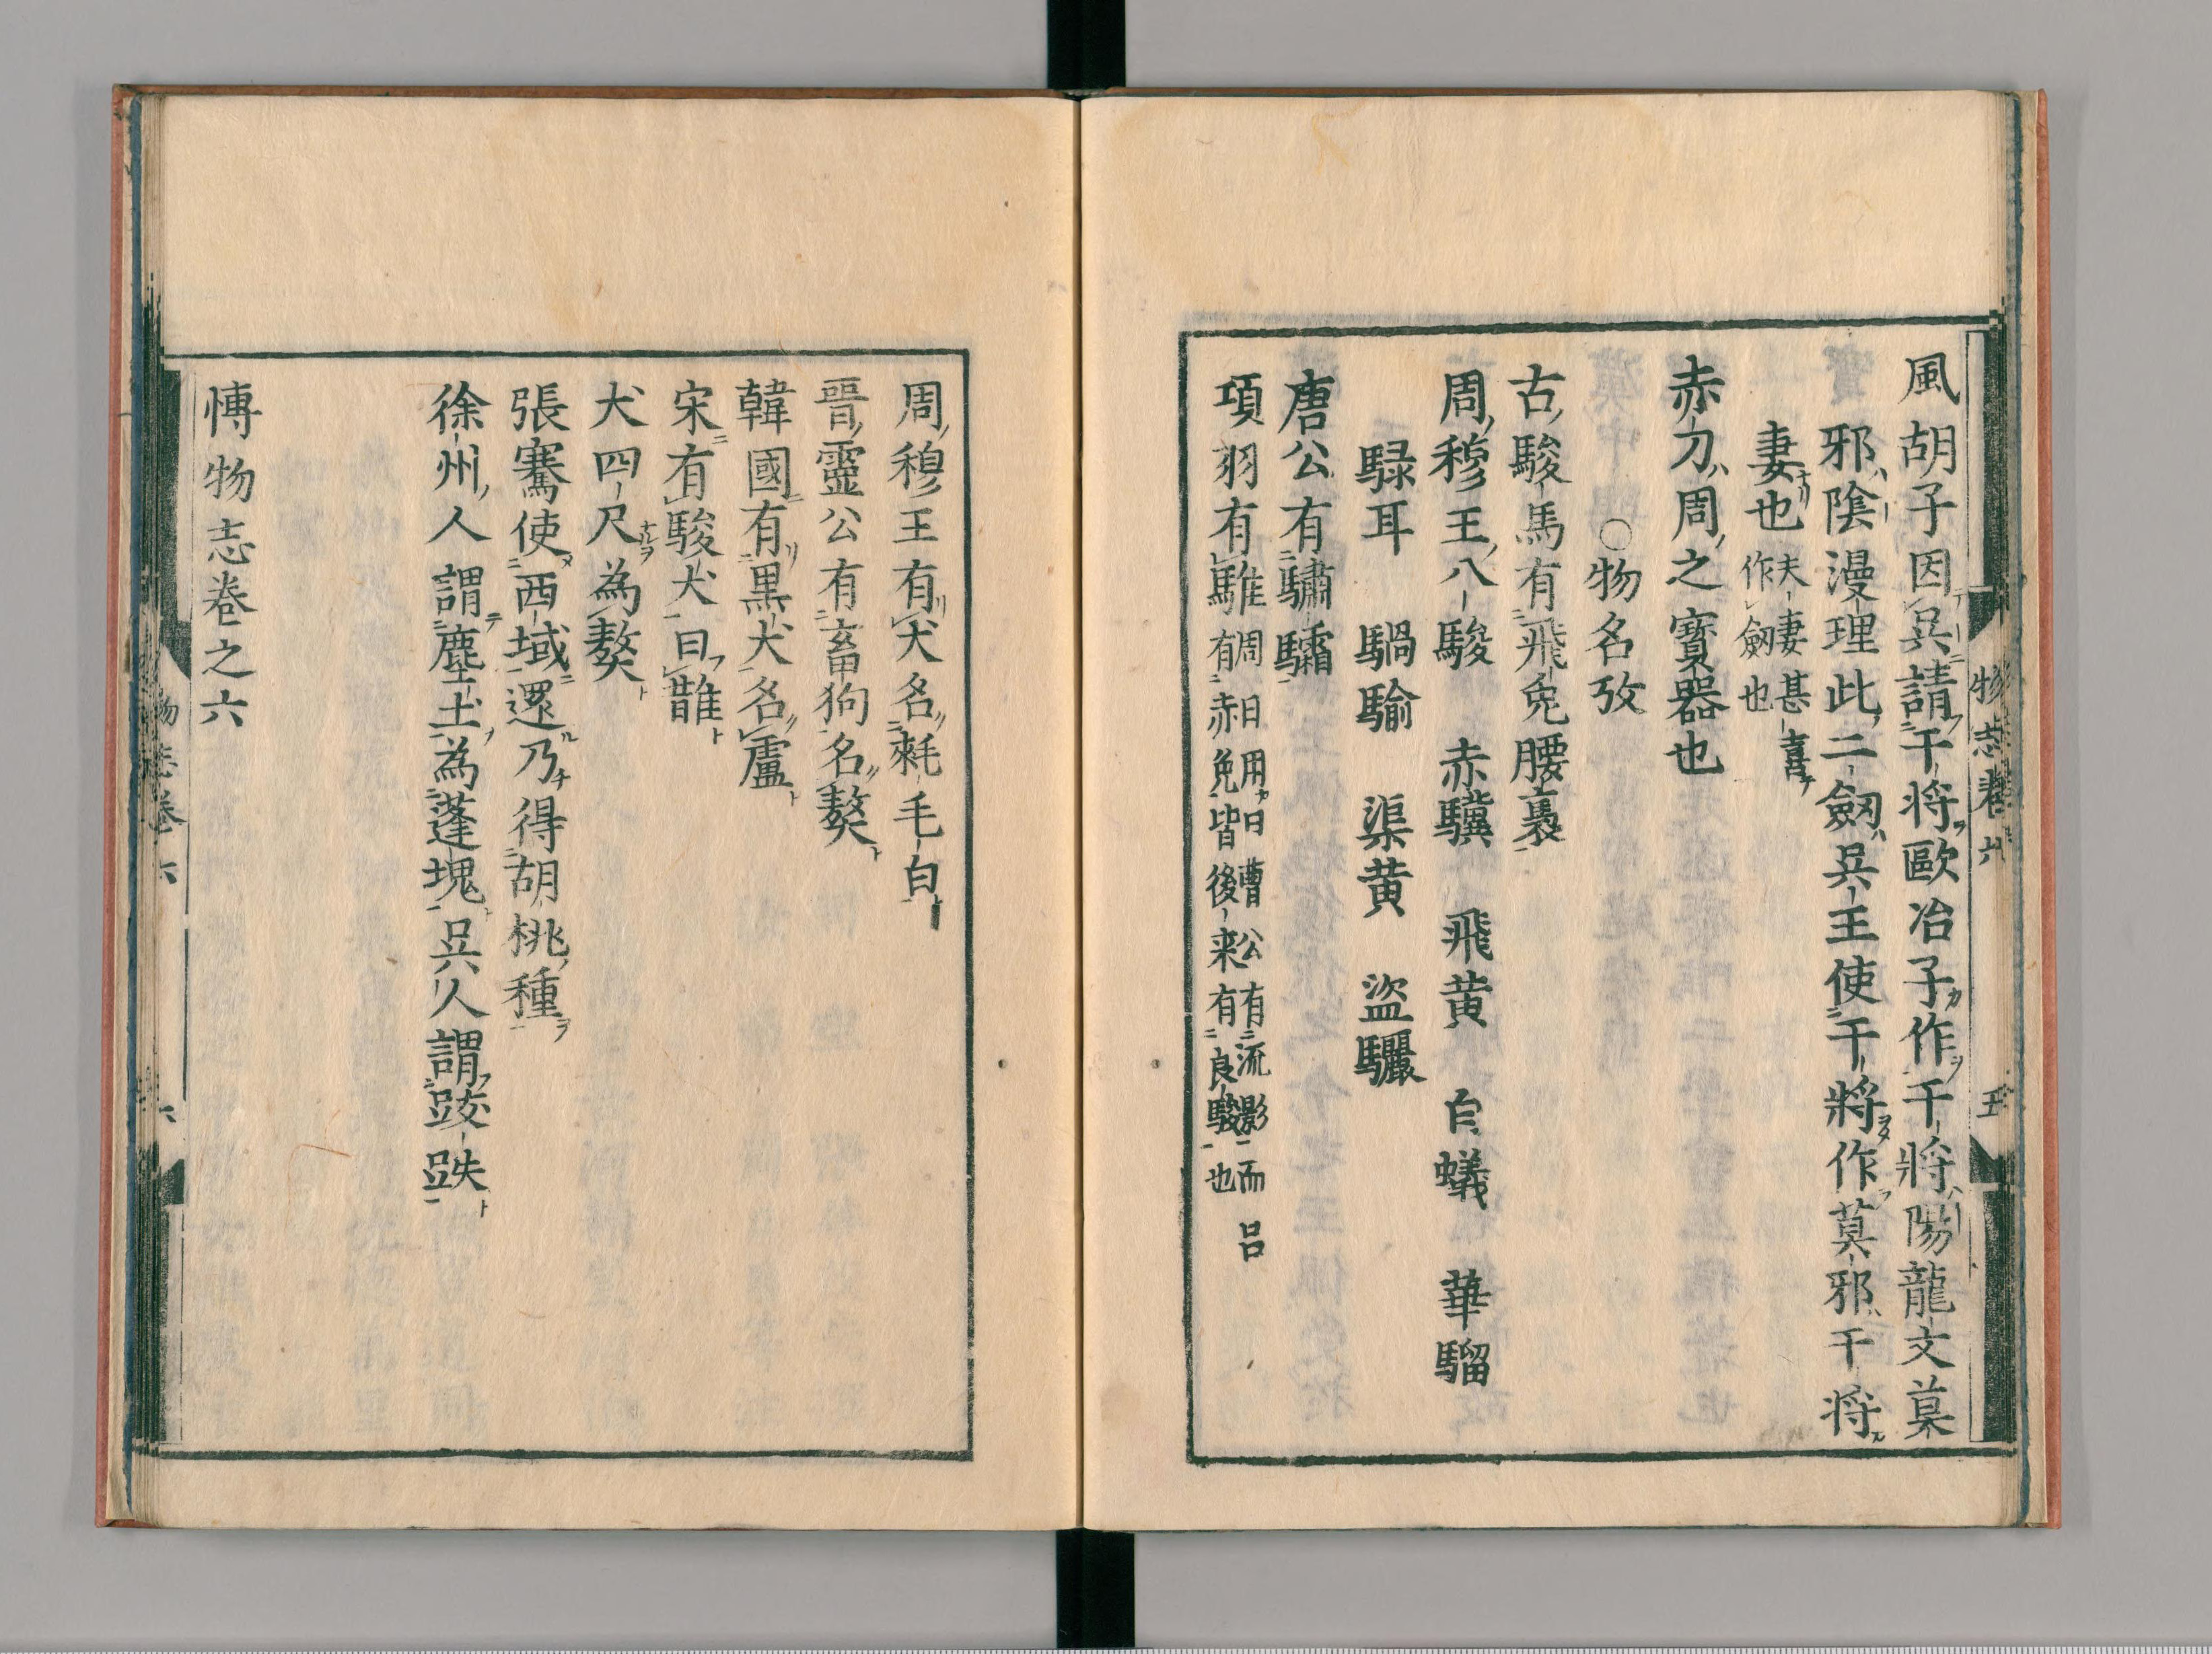 風胡子因吳請干將歐冶子作干將陽龍文莫
邪陰漫理此二劔吳王使干將作莫邪干將
妻也夫妻甚喜作劔也
赤刀周之寶器也
○物名攷
古駿馬有飛兔腰褭
周穆王八駿 赤驥 飛黄 白蟻 華騮
騄耳 騧騟 渠黄 盜驪
唐公有驌驦
項羽有騅周日用曰曹公有流影而呂有赤兔皆後来有良駿也
物志卷六 五
周穆王有犬名耗毛白
晉靈公有畜狗名獒
韓國有黒犬名盧
宋有駿犬曰䧿
犬四尺為獒
張騫使西域還乃得胡桃種
徐州人謂塵土為蓬塊吳人謂跋跌
博物志卷之六
物志卷六 六